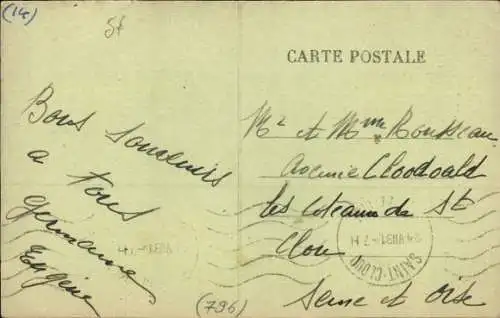 (14)
CARTE POSTALE
Bons souvenirs
a tous
Germaine
Eugène
Mr et Mme Rousseau
Avenue Clodoald
les coteaux de St
Clou
Seine et Oise
SAINT-CLOUD
(796)